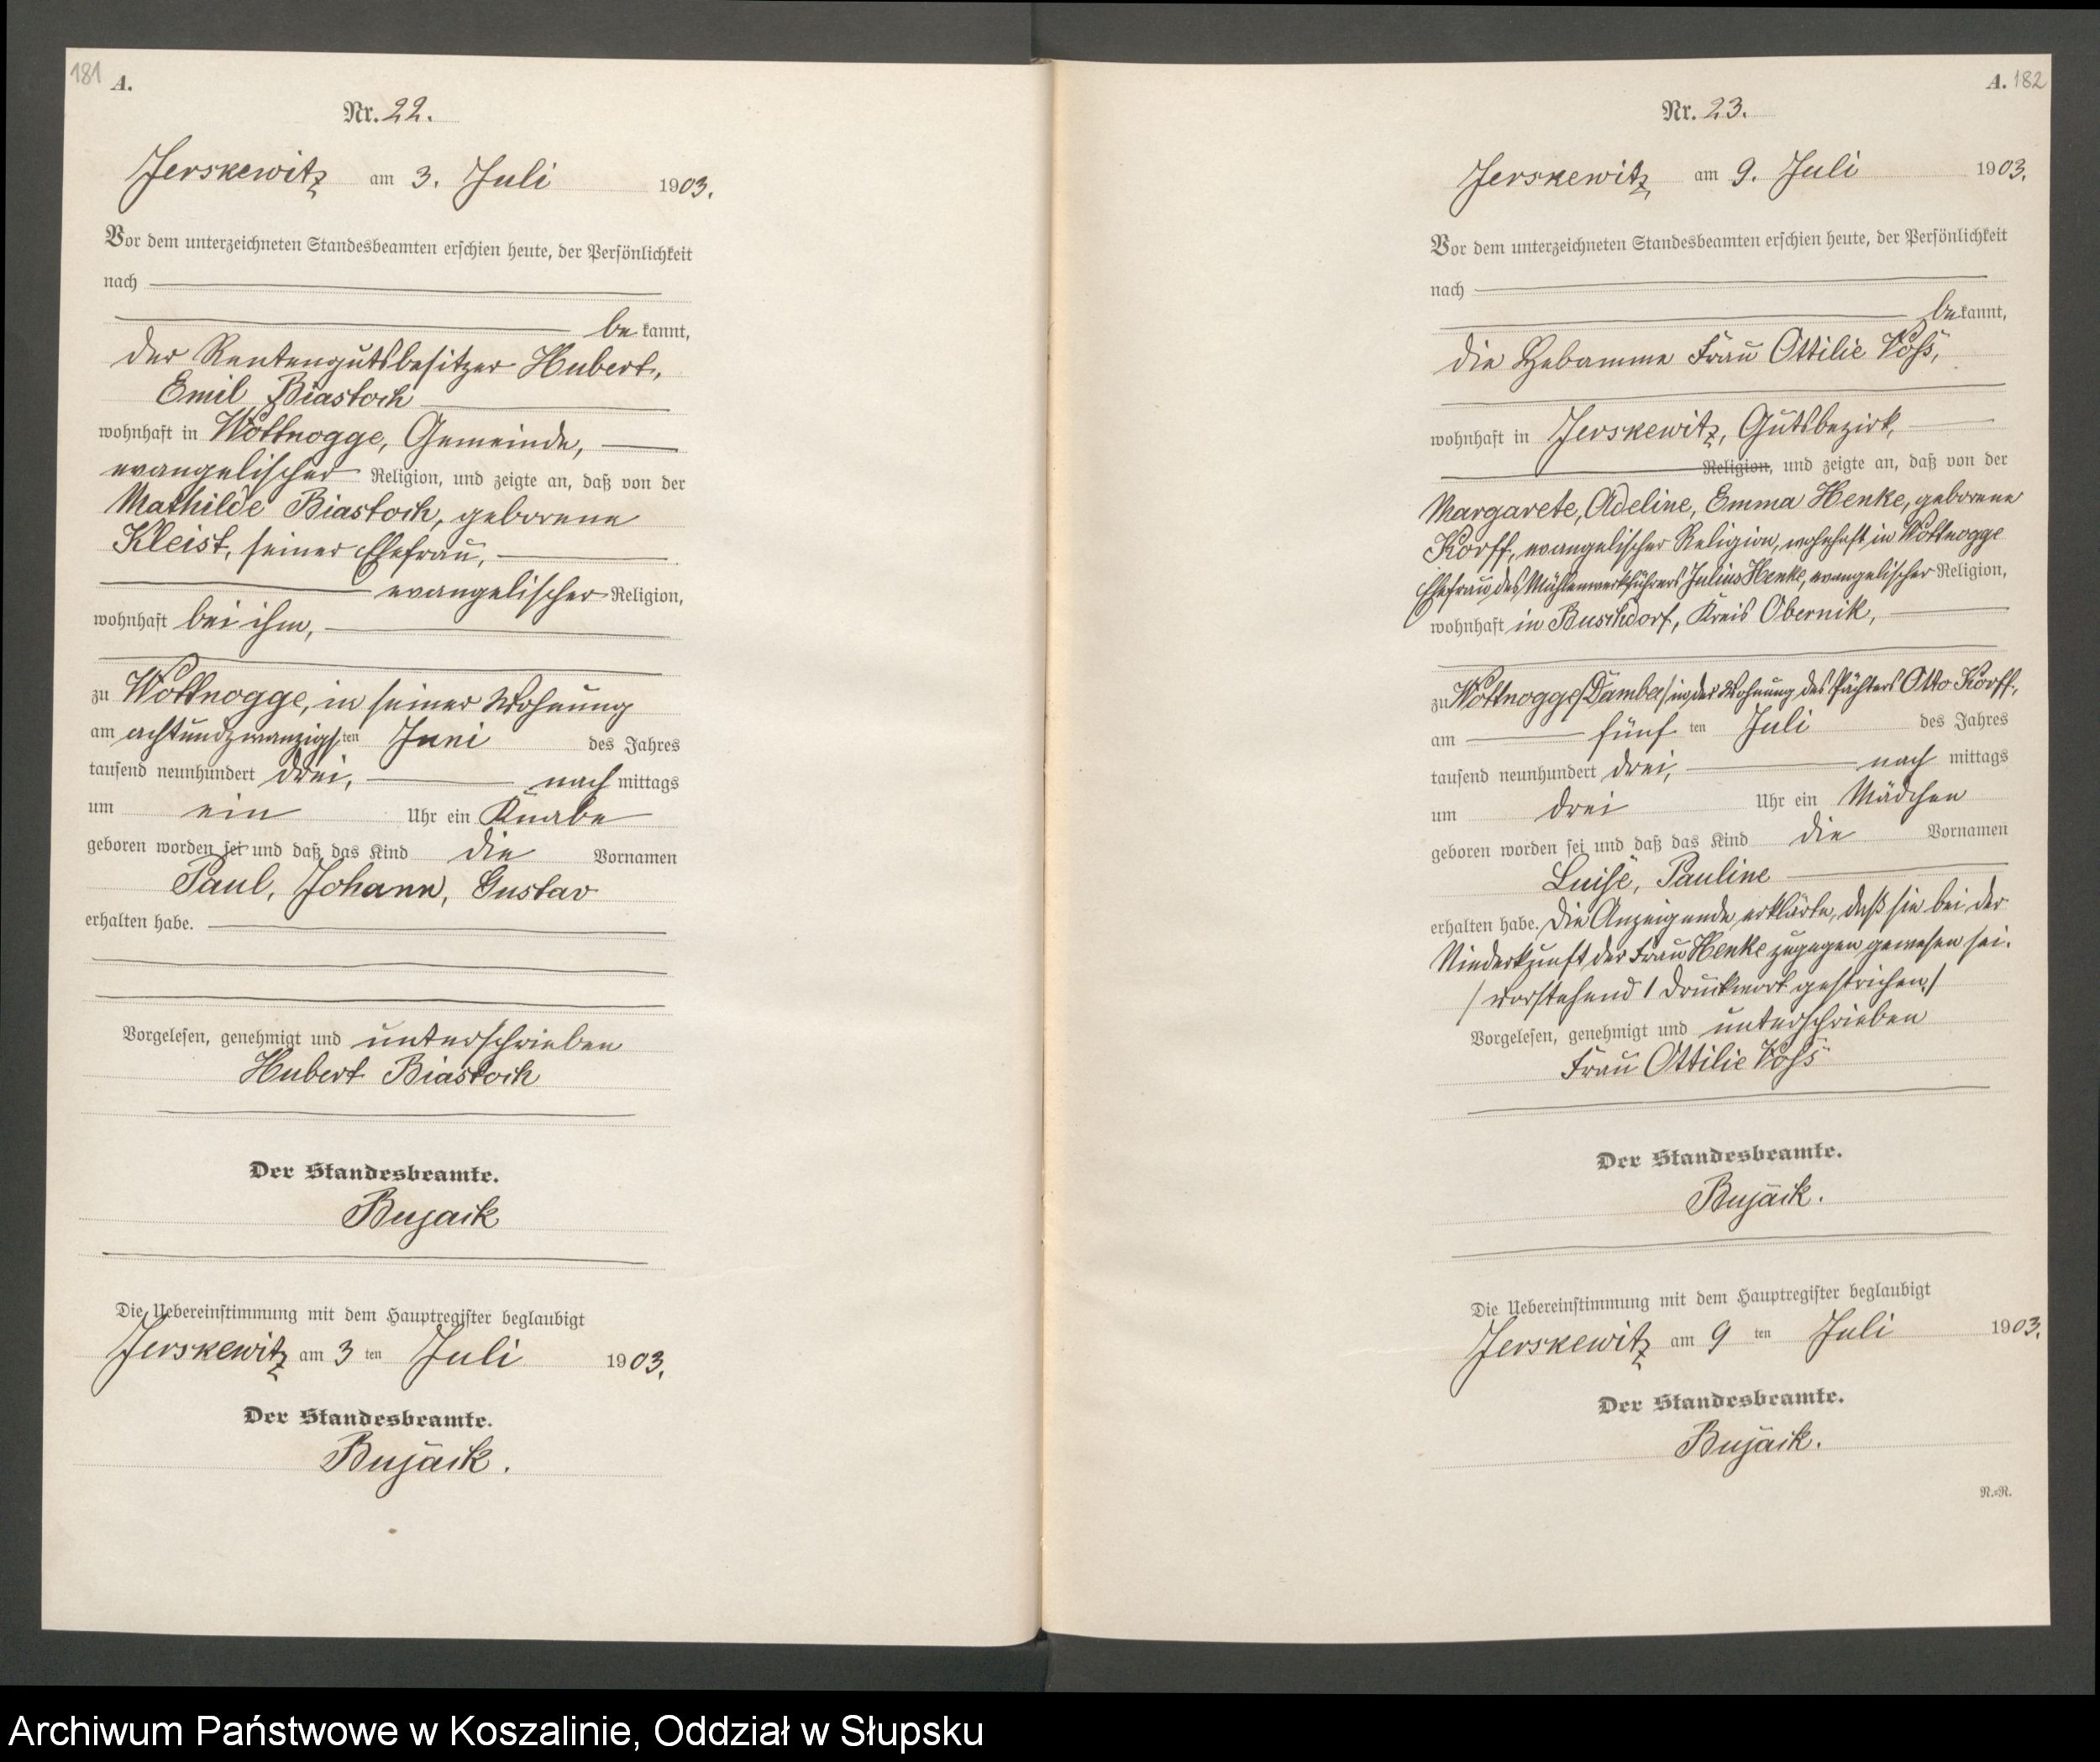 181 A.
Nr. 22.
Jerskewitz am 3. Juli 1903.
Vor dem unterzeichneten Standesbeamten erschien heute, der Persönlichkeit
nach
be kannt,
der Rentengutsbesitzer Hubert,
Emil Biastoch
wohnhaft in Wottnogge, Gemeinde,
evangelischer Religion, und zeigte an, daß von der
Mathilde Biastoch, geborene
Kleist, seiner Ehefrau,
evangelischer Religion,
wohnhaft bei ihm,
zu Wottnogge, in seiner Wohnung
am achtundzwanzigsten Juni des Jahres
tausend neunhundert drei, nach mittags
um ein Uhr ein Knabe
geboren worden sei und daß das Kind die Vornamen
Paul, Johann, Gustav
erhalten habe.
Vorgelesen, genehmigt und unterschrieben
Hubert Biastoch
Der Standesbeamte.
Bujack
Die Uebereinstimmung mit dem Hauptregister beglaubigt
Jerskewitz am 3 ten Juli 1903.
Der Standesbeamte.
Bujack.
A. 182
Nr. 23.
Jerskewitz am 9. Juli 1903.
Vor dem unterzeichneten Standesbeamten erschien heute, der Persönlichkeit
nach
be kannt,
die Hebamme Frau Ottilie Voß,
wohnhaft in Jerskewitz, Gutsbezirk,
Religion, und zeigte an, daß von der
Margarete, Adeline, Emma Henke, geborene
Korff, evangelischer Religion, wohnhaft in Wottnogge
Ehefrau des Mühlenwerkführers Julius Henke, evangelischer Religion,
wohnhaft in Buschdorf, Kreis Obernik,
zu Wottnogge /Dambee/ in der Wohnung des Pächters Otto Korff,
am fünf ten Juli des Jahres
tausend neunhundert drei, nach mittags
um drei Uhr ein Mädchen
geboren worden sei und daß das Kind die Vornamen
Luise, Pauline
erhalten habe. Die Anzeigende erklärte, daß sie bei der
Niederkunft der Frau Henke zugegen gewesen sei.
/ Vorstehend 1 Druckwort gestrichen. /
Vorgelesen, genehmigt und unterschrieben
Frau Ottilie Voß
Der Standesbeamte.
Bujack.
Die Uebereinstimmung mit dem Hauptregister beglaubigt
Jerskewitz am 9 ten Juli 1903.
Der Standesbeamte.
Bujack.
R.=R.
Archiwum Państwowe w Koszalinie, Oddział w Słupsku